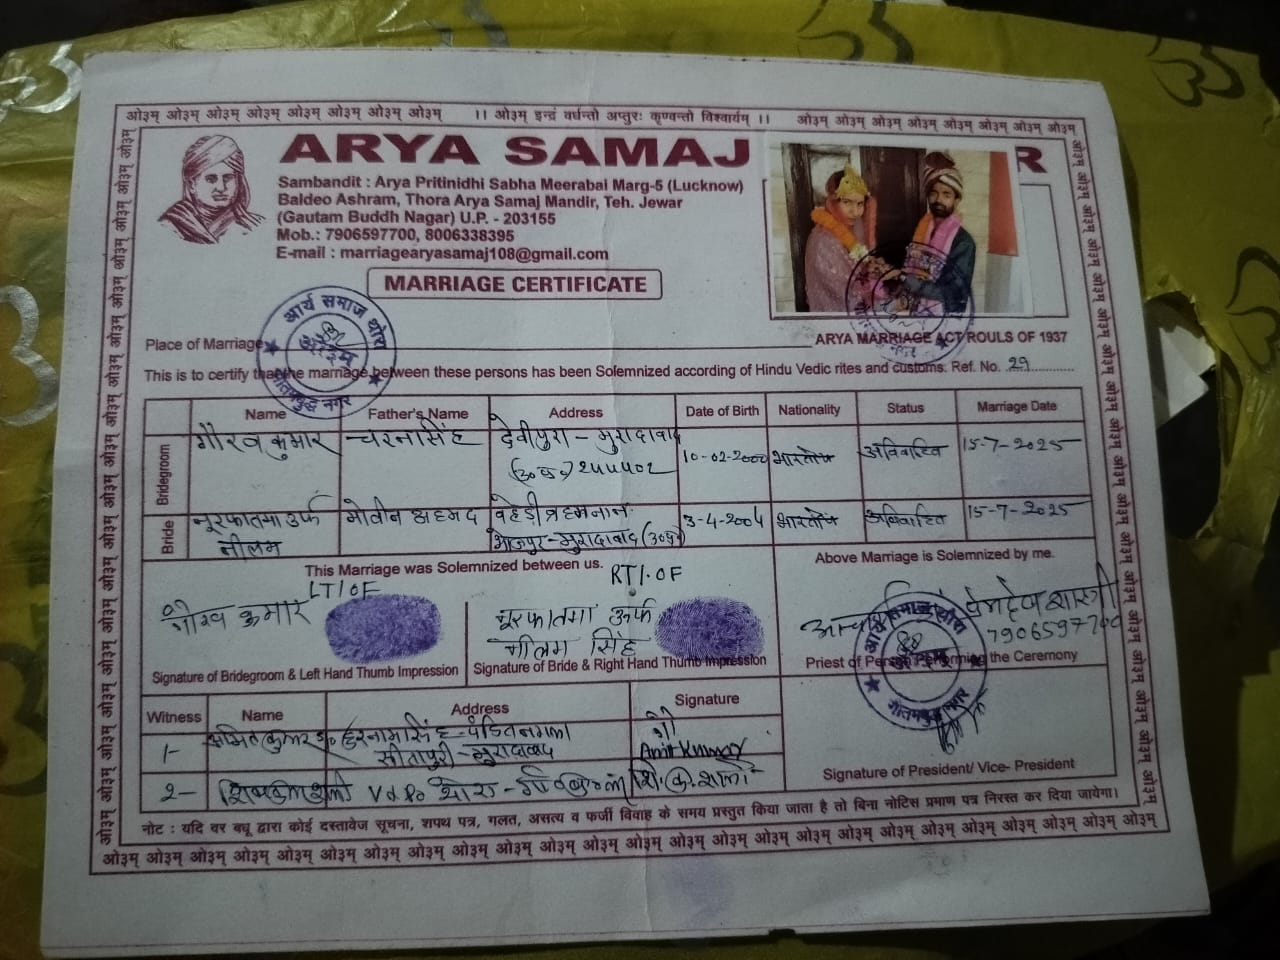 ओ३म् ओ३म् ओ३म् ओ३म् ओ३म् ओ३म् ओ३म् ओ३म् ।। ओ३म् इन्द्रं वर्धन्तो अप्तुरः कृण्वन्तो विश्वार्यम् ।। ओ३म् ओ३म् ओ३म् ओ३म् ओ३म् ओ३म् ओ३म्
ARYA SAMAJ R
Sambandit : Arya Pritinidhi Sabha Meerabai Marg-5 (Lucknow)
Baldeo Ashram, Thora Arya Samaj Mandir, Teh. Jewar
(Gautam Buddh Nagar) U.P. - 203155
Mob.: 7906597700, 8006338395
E-mail : marriagearyasamaj108@gmail.com
MARRIAGE CERTIFICATE
आर्य समाज थोरा
गौतमबुद्ध नगर
Place of Marriage
ARYA MARRIAGE ACT ROULS OF 1937
This is to certify that the marriage between these persons has been Solemnized according of Hindu Vedic rites and customs. Ref. No. 29
Name Father's Name Address Date of Birth Nationality Status Marriage Date
Bridegroom गौरव कुमार चरनसिंह देवीपुरा - मुरादाबाद 10-02-2000 भारतीय अविवाहित 15-7-2025
(उ०प्र०) २४४४०२
Bride नूरफातमा उर्फ मोबीन अहमद 3-4-2004 भारतीय अविवाहित 15-7-2025
नीलम भोजपुर - मुरादाबाद (उ०प्र०)
This Marriage was Solemnized between us.
Above Marriage is Solemnized by me.
LTI OF RTI. OF
गौरव कुमार
नूरफातमा उर्फ
नीलम सिंह
7906597700
Signature of Bridegroom & Left Hand Thumb Impression
Signature of Bride & Right Hand Thumb Impression
Priest of Person Performing the Ceremony
आर्य समाज थोरा
गौतमबुद्ध नगर
Witness Name Address Signature
1- अमित कुमार S/o हरनामसिंह - पंडित नगला
सीतापुरी - मुरादाबाद Amit Kumar
2-
Signature of President/ Vice- President
नोट : यदि वर वधू द्वारा कोई दस्तावेज सूचना, शपथ पत्र, गलत, असत्य व फर्जी विवाह के समय प्रस्तुत किया जाता है तो बिना नोटिस प्रमाण पत्र निरस्त कर दिया जायेगा।
ओ३म् ओ३म् ओ३म् ओ३म् ओ३म् ओ३म् ओ३म् ओ३म् ओ३म् ओ३म् ओ३म् ओ३म् ओ३म् ओ३म् ओ३म् ओ३म् ओ३म् ओ३म् ओ३म् ओ३म् ओ३म् ओ३म् ओ३म् ओ३म् ओ३म्